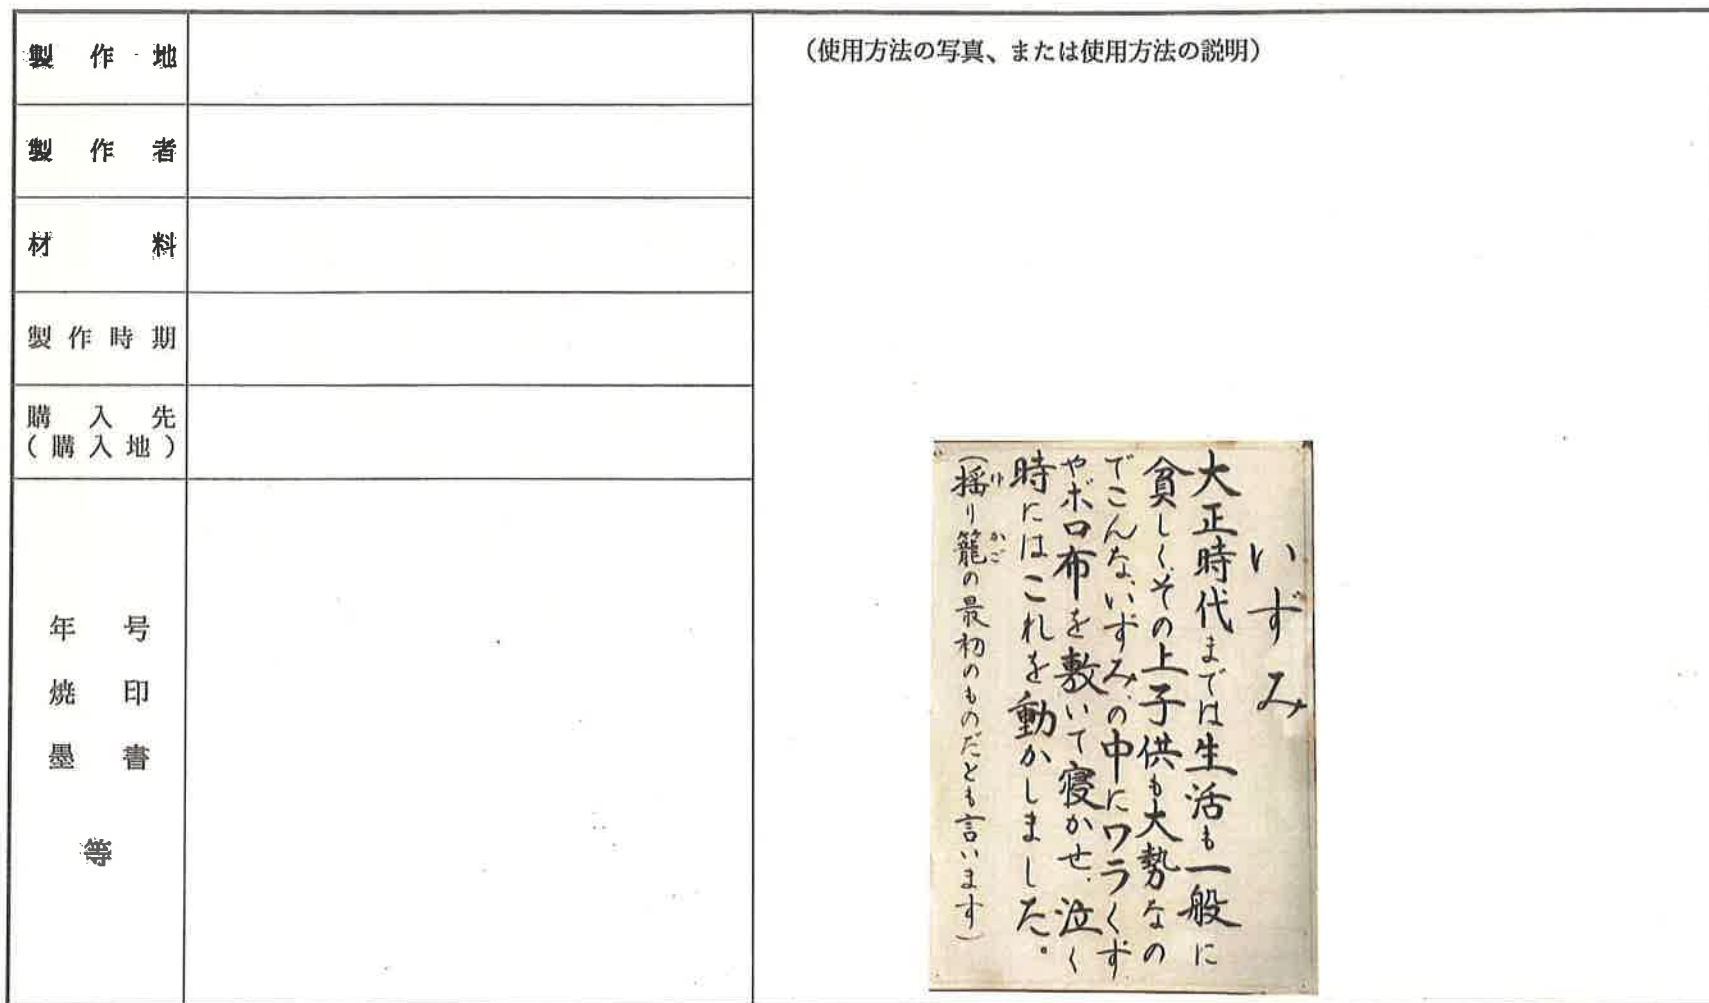 製作地
製作者
材料
製作時期
購入先
(購入地)
年号
焼印
墨書
等
(使用方法の写真、または使用方法の説明)
いずみ
大正時代までは生活も一般に
貧しく、その上子供も大勢なの
でこんな、いずみ、の中にワラくず
やボロ布を敷いて寝かせ、泣く
時にはこれを動かしました。
(揺り籠の最初のものだとも言います)
ゆ
かご